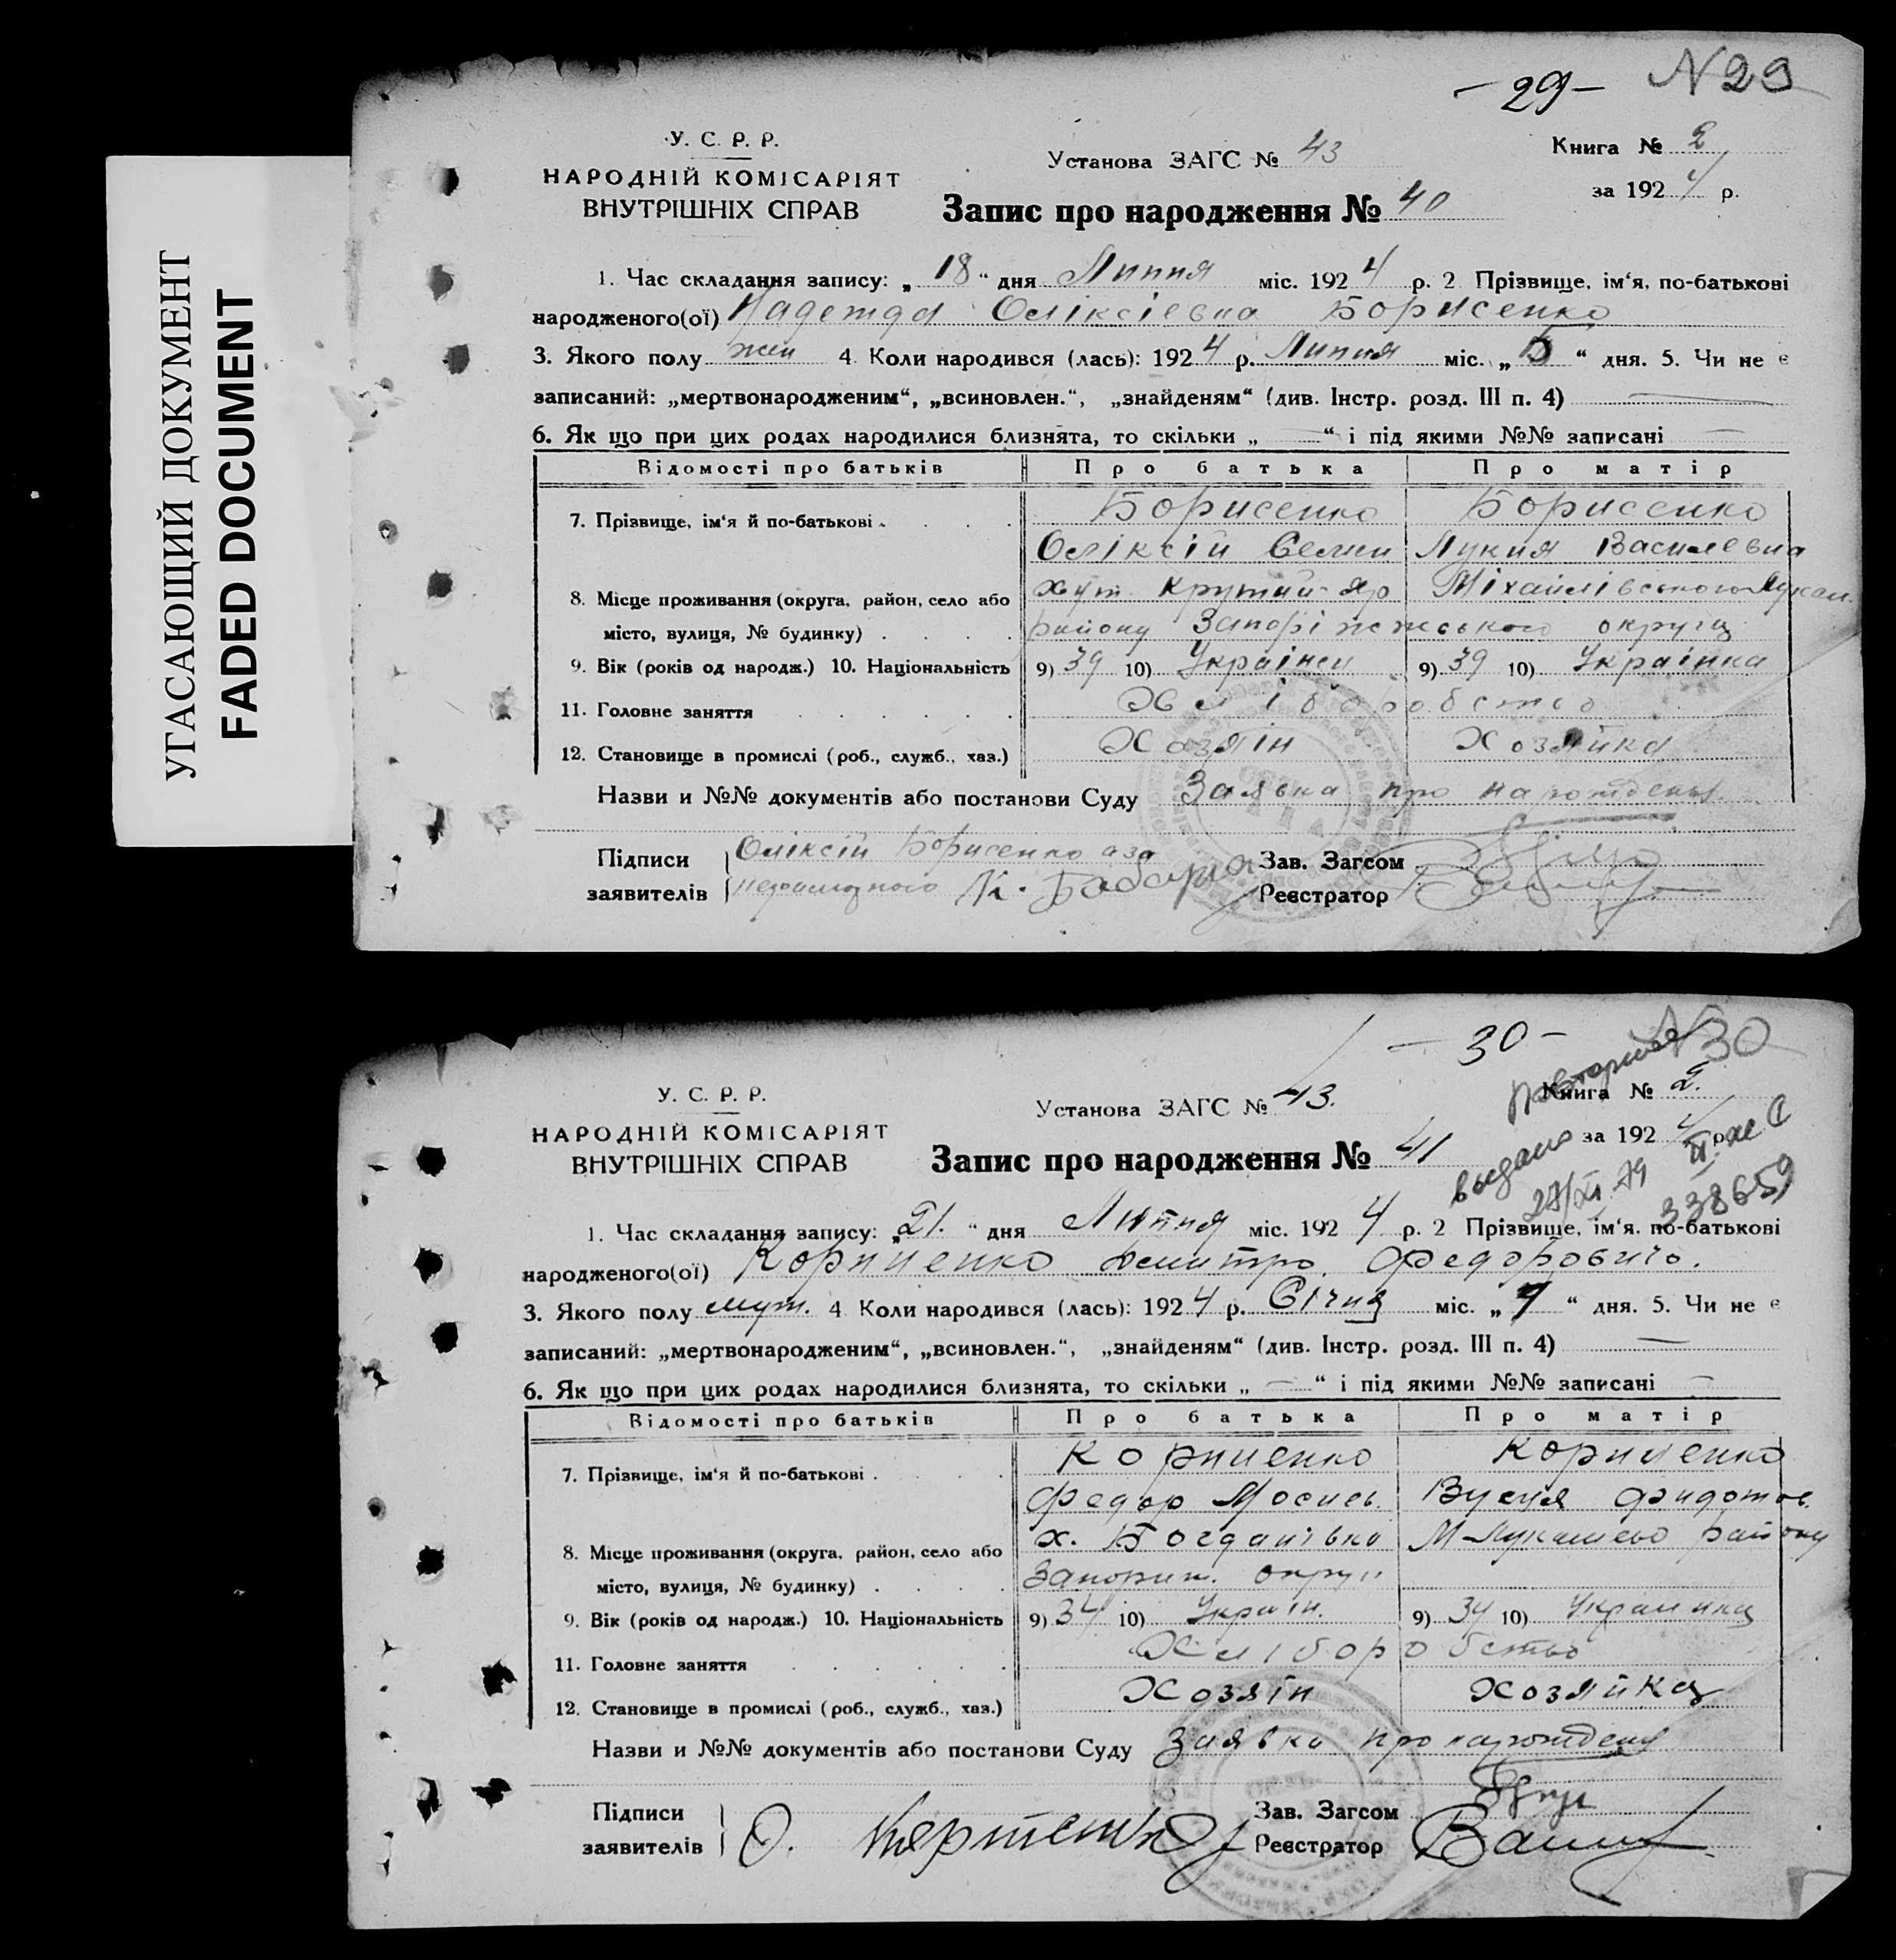 УГАСАЮЩИЙ ДОКУМЕНТ
FADED DOCUMENT
-29- N29
У. С. Р. Р.
НАРОДНІЙ КОМІСАРІЯТ
ВНУТРІШНІХ СПРАВ
Установа ЗАГС № 43
Запис про народження № 40
Книга № 2
за 1924 р.
1. Час складання запису: „18“ дня Липня міс. 1924 р. 2 Прізвище, ім‘я, по-батькові
народженого(ої) Надежда Оліксіевна Борисенко
3. Якого полу жен 4 Коли народився (лась): 1924 р. Липня міс. „5“ дня. 5. Чи не є
записаний: „мертвонародженим“, „всиновлен.“, „знайденям“ (див. Інстр. розд. III п. 4) —
6. Як що при цих родах народилися близнята, то скільки „—“ і під якими №№ записані —
Відомості про батьків Про батька Про матір
7. Прізвище, ім‘я й по-батькові Борисенко Борисенко
Оліксій Семен Лукия Василевна
8. Місце проживання (округа, район, село або хут. Крутий-Яр Міхайлівського-Лукаш.
місто, вулиця, № будинку) району Запоріжжського округа
9. Вік (років од народж.) 10. Національність 9) 39 10) Українец 9) 39 10) Українка
11. Головне заняття Хліборобство
12. Становище в промислі (роб., служб., хаз.) Хозяін Хозяйка
Назви и №№ документів або постанови Суду Заявка про народженья
Підписи Оліксій Борисенко а за Зав. Загсом
заявителів неграмотного К. Бабария Реєстратор
-30- N30
повторное
выдано
27/XI.79 II-ЖС
338659
У. С. Р. Р.
НАРОДНІЙ КОМІСАРІЯТ
ВНУТРІШНІХ СПРАВ
Установа ЗАГС № 43.
Запис про народження № 41
Книга № 2.
за 1924 р.
1. Час складання запису: „21.“ дня Липня міс. 1924 р. 2 Прізвище, ім‘я. по-батькові
народженого(ої) Корниенко Дмитро. Федоровичь.
3. Якого полу муж. 4 Коли народився (лась): 1924 р. Січня міс. „7“ дня. 5. Чи не є
записаний: „мертвонародженим“, „всиновлен.“, „знайденям“ (див. Інстр. розд. III п. 4) —
6. Як що при цих родах народилися близнята, то скільки „—“ і під якими №№ записані —
Відомості про батьків Про батька Про матір
7. Прізвище, ім‘я й по-батькові Корниенко Корниенко
Федор
8. Місце проживання (округа, район, село або х. Богданівка М-Лукашево району
місто, вулиця, № будинку) Запориж. округи
9. Вік (років од народж.) 10. Національність 9) 34 10) Украін. 9) 34 10) Украинка
11. Головне заняття Хліборобство
12. Становище в промислі (роб., служб., хаз.) Хозяін Хозяйка
Назви и №№ документів або постанови Суду Заявка про народженя
Підписи Зав. Загсом
заявителів Реєстратор